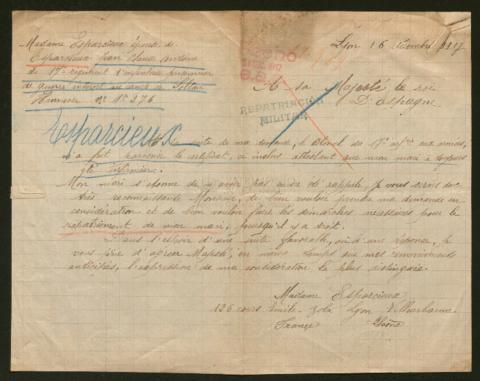 Madame Esparcieux épouse de
Esparcieux Jean Claude
du 17e régiment d'infanterie prisonnier
de guerre interné au camp de Soltau
Hannover 
Lyon 16 Décembre 1917
A sa Majesté le roi
D'Espagne
REPATRIACION
MILITAR
Esparcieux
de ma demande, le
m'a fait parvenir le certificat, ci inclus attestant que mon mari a toujours
été infirmier.
Mon mari s'étonne de n'avoir pas encore été rappelé, je vous serais donc
très reconnaissante Monsieur, de bien vouloir prendre ma demande en
considération et de bien vouloir faire les démarches nécessaires pour le
rapatriement de mon mari, puisqu'il y a droit.
Dans l'espoir d'une suite favorable, ou d'une réponse, je
vous prie d'agréer Majesté, en même temps que mes remerciements
anticipés, l'expression de ma considération la plus distinguée.
Madame Esparcieux
136 cours Emile-Zola Lyon Villeurbanne
France Rhône